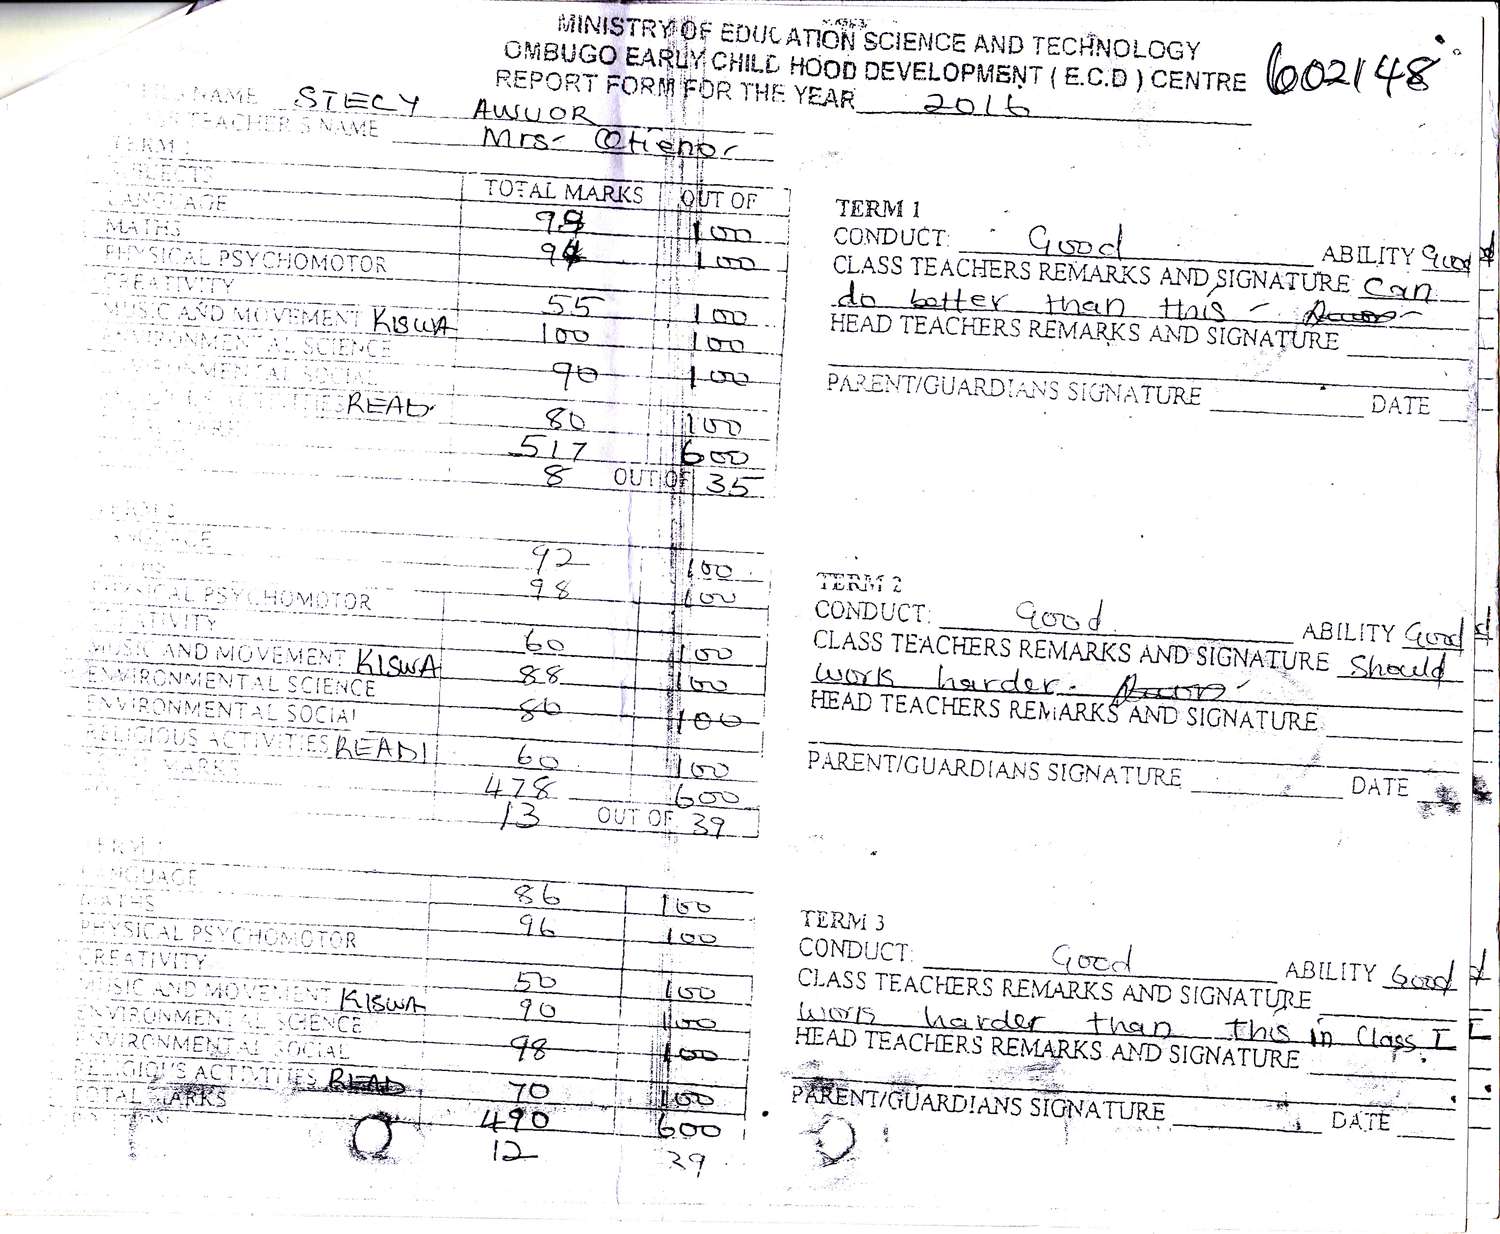 MINISTRY OF EDUCATION SCIENCE AND TECHNOLOGY
OMBUGO EARLY CHILD HOOD DEVELOPMENT ( E.C.D ) CENTRE 602148
REPORT FORM FOR THE YEAR 2016
NAME STECY AWUOR
TEACHER'S NAME Mrs- Otieno-
TERM
SUBJECTS TOTAL MARKS OUT OF
LANGUAGE 100
MATHS 100
PHYSICAL PSYCHOMOTOR
CREATIVITY 55 100
MUSIC AND MOVEMENT KISWA 100 100
ENVIRONMENTAL SCIENCE 90 100
ENVIRONMENTAL SOCIAL
ACTIVITIES READ 80 100
517 600
8 OUT OF 35
TERM 1
CONDUCT: Good ABILITY Good
CLASS TEACHERS REMARKS AND SIGNATURE Can
do better than this -
HEAD TEACHERS REMARKS AND SIGNATURE
PARENT/GUARDIANS SIGNATURE DATE
TERM 2
92 100
98 100
PHYSICAL PSYCHOMOTOR
CREATIVITY 60 100
MUSIC AND MOVEMENT KISWA 88 100
ENVIRONMENTAL SCIENCE 80 100
ENVIRONMENTAL SOCIAL
RELIGIOUS ACTIVITIES READI 60 100
MARKS 478 600
13 OUT OF 39
TERM 2
CONDUCT: Good ABILITY Good
CLASS TEACHERS REMARKS AND SIGNATURE Should
work harder.
HEAD TEACHERS REMARKS AND SIGNATURE
PARENT/GUARDIANS SIGNATURE DATE
TERM
LANGUAGE 86 100
MATHS 96 100
PHYSICAL PSYCHOMOTOR
CREATIVITY 50 100
MUSIC AND MOVEMENT KISWA 90 100
ENVIRONMENTAL SCIENCE 98 100
ENVIRONMENTAL SOCIAL
RELIGIOUS ACTIVITIES READ 70 100
TOTAL MARKS 490 600
12 39
TERM 3
CONDUCT: Good ABILITY Good
CLASS TEACHERS REMARKS AND SIGNATURE
work harder than this in Class I
HEAD TEACHERS REMARKS AND SIGNATURE
PARENT/GUARDIANS SIGNATURE DATE